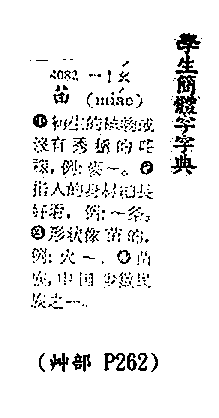 學生簡體字字典
4082 ㄇㄧㄠˊ
苗 (miáo)
❶初生的植物或
沒有秀穗的
例:麥~。❷
指人的身材
例:~条。
❸形狀像苗的,
例:火~。❹苗
族,中国少数民
族之一。
(艸部 P262)